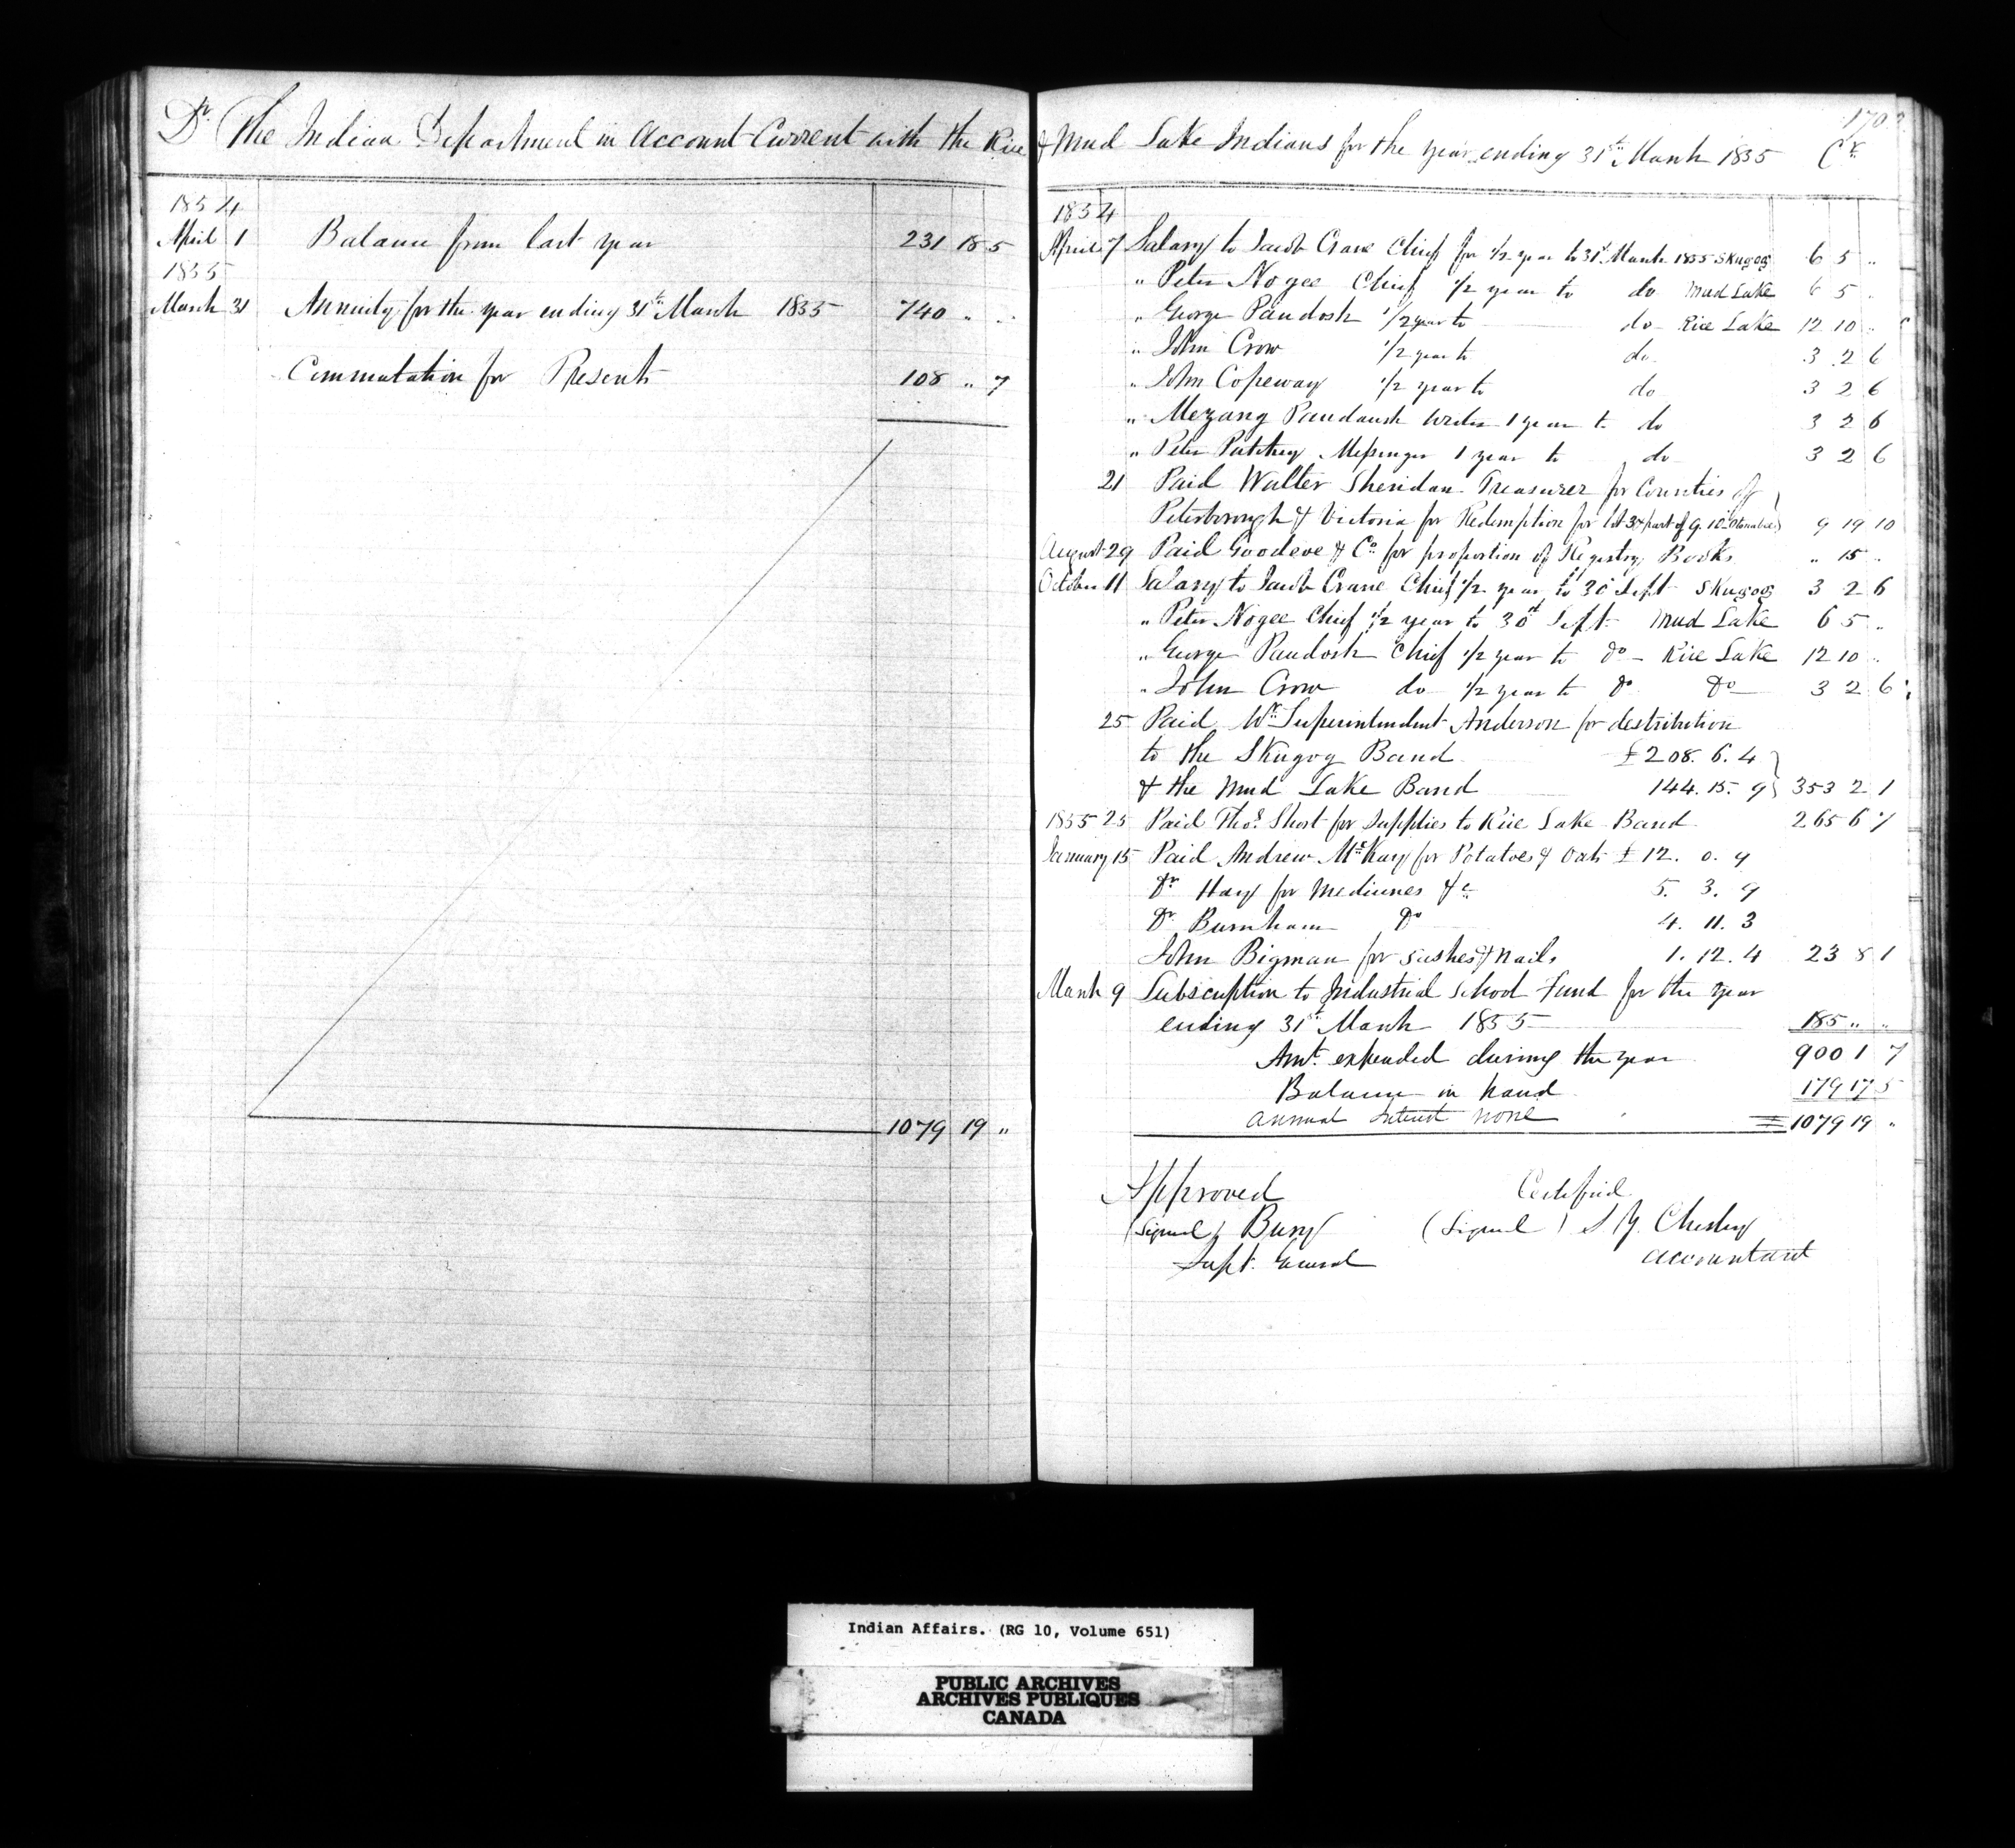 Dr. The Indian Department in Account Current with the Rice
1854
April 1 Balance from last year 231 18 5
1855
March 31 Annuity for the year ending 31st March 1855 740 " "
Commutation for Presents 108 " 7
1079 19 "
170
& Mud Lake Indians for the year ending 31st March 1855 Cr.
1854
April 7 Salary to Jacob Crane Chief for 1/2 year to 31st March 1855 Skugog 6 5 "
" Peter Nogee Chief 1/2 year to do Mud Lake 6 5 "
" George Paudosh 1/2 year to do Rice Lake 12 10 "
" John Crow 1/2 year to do 3 2 6
" John Copeway 1/2 year to do 3 2 6
" Mezang Paudaush Writer 1 year to do 3 2 6
" Peter Messenger 1 year to do 3 2 6
21 Paid Walter Sheridan Treasurer for Counties of
Peterborough & Victoria for Redemption for lot 3 & part of 9. 10 Otonabee 9 19 10
August 29 Paid Goodeve & Co. for proportion of Registry Books " 15 "
October 11 Salary to Jacob Crane Chief 1/2 year to 30 Sept Skugog 3 2 6
" Peter Nogee Chief 1/2 year to 30th Sept Mud Lake 6 5 "
" George Paudosh Chief 1/2 year to Do - Rice Lake 12 10 "
" John Crow do 1/2 year to Do Do 3 2 6
25 Paid Superintendent Anderson for destribution
to the Skugog Band £208. 6. 4
& the Mud Lake Band 144. 15. 9 353 2 1
1855 25 Paid Thos. Short for Supplies to Rice Lake Band 265 6 7
January 15 Paid Andrew McKay for Potatoes & Oats £12. 0. 9
Dr Hay for Medicines &c 5. 3. 9
Dr. Burnham Do 4. 11. 3
John Bigman for sashes & nails 1. 12. 4 23 8 1
March 9 Subscription to Industrial School Fund for the year
ending 31st March 1855 185 " "
Amt. expended during the year 900 1 7
Balance in hand 179 17 5
Annual Interest none 1079 19 "
Approved Certified
(Signed) Bury (Signed) S Y. Chesley
Supt. General Accountant
Indian Affairs. (RG 10, Volume 651)
PUBLIC ARCHIVES
ARCHIVES PUBLIQUES
CANADA